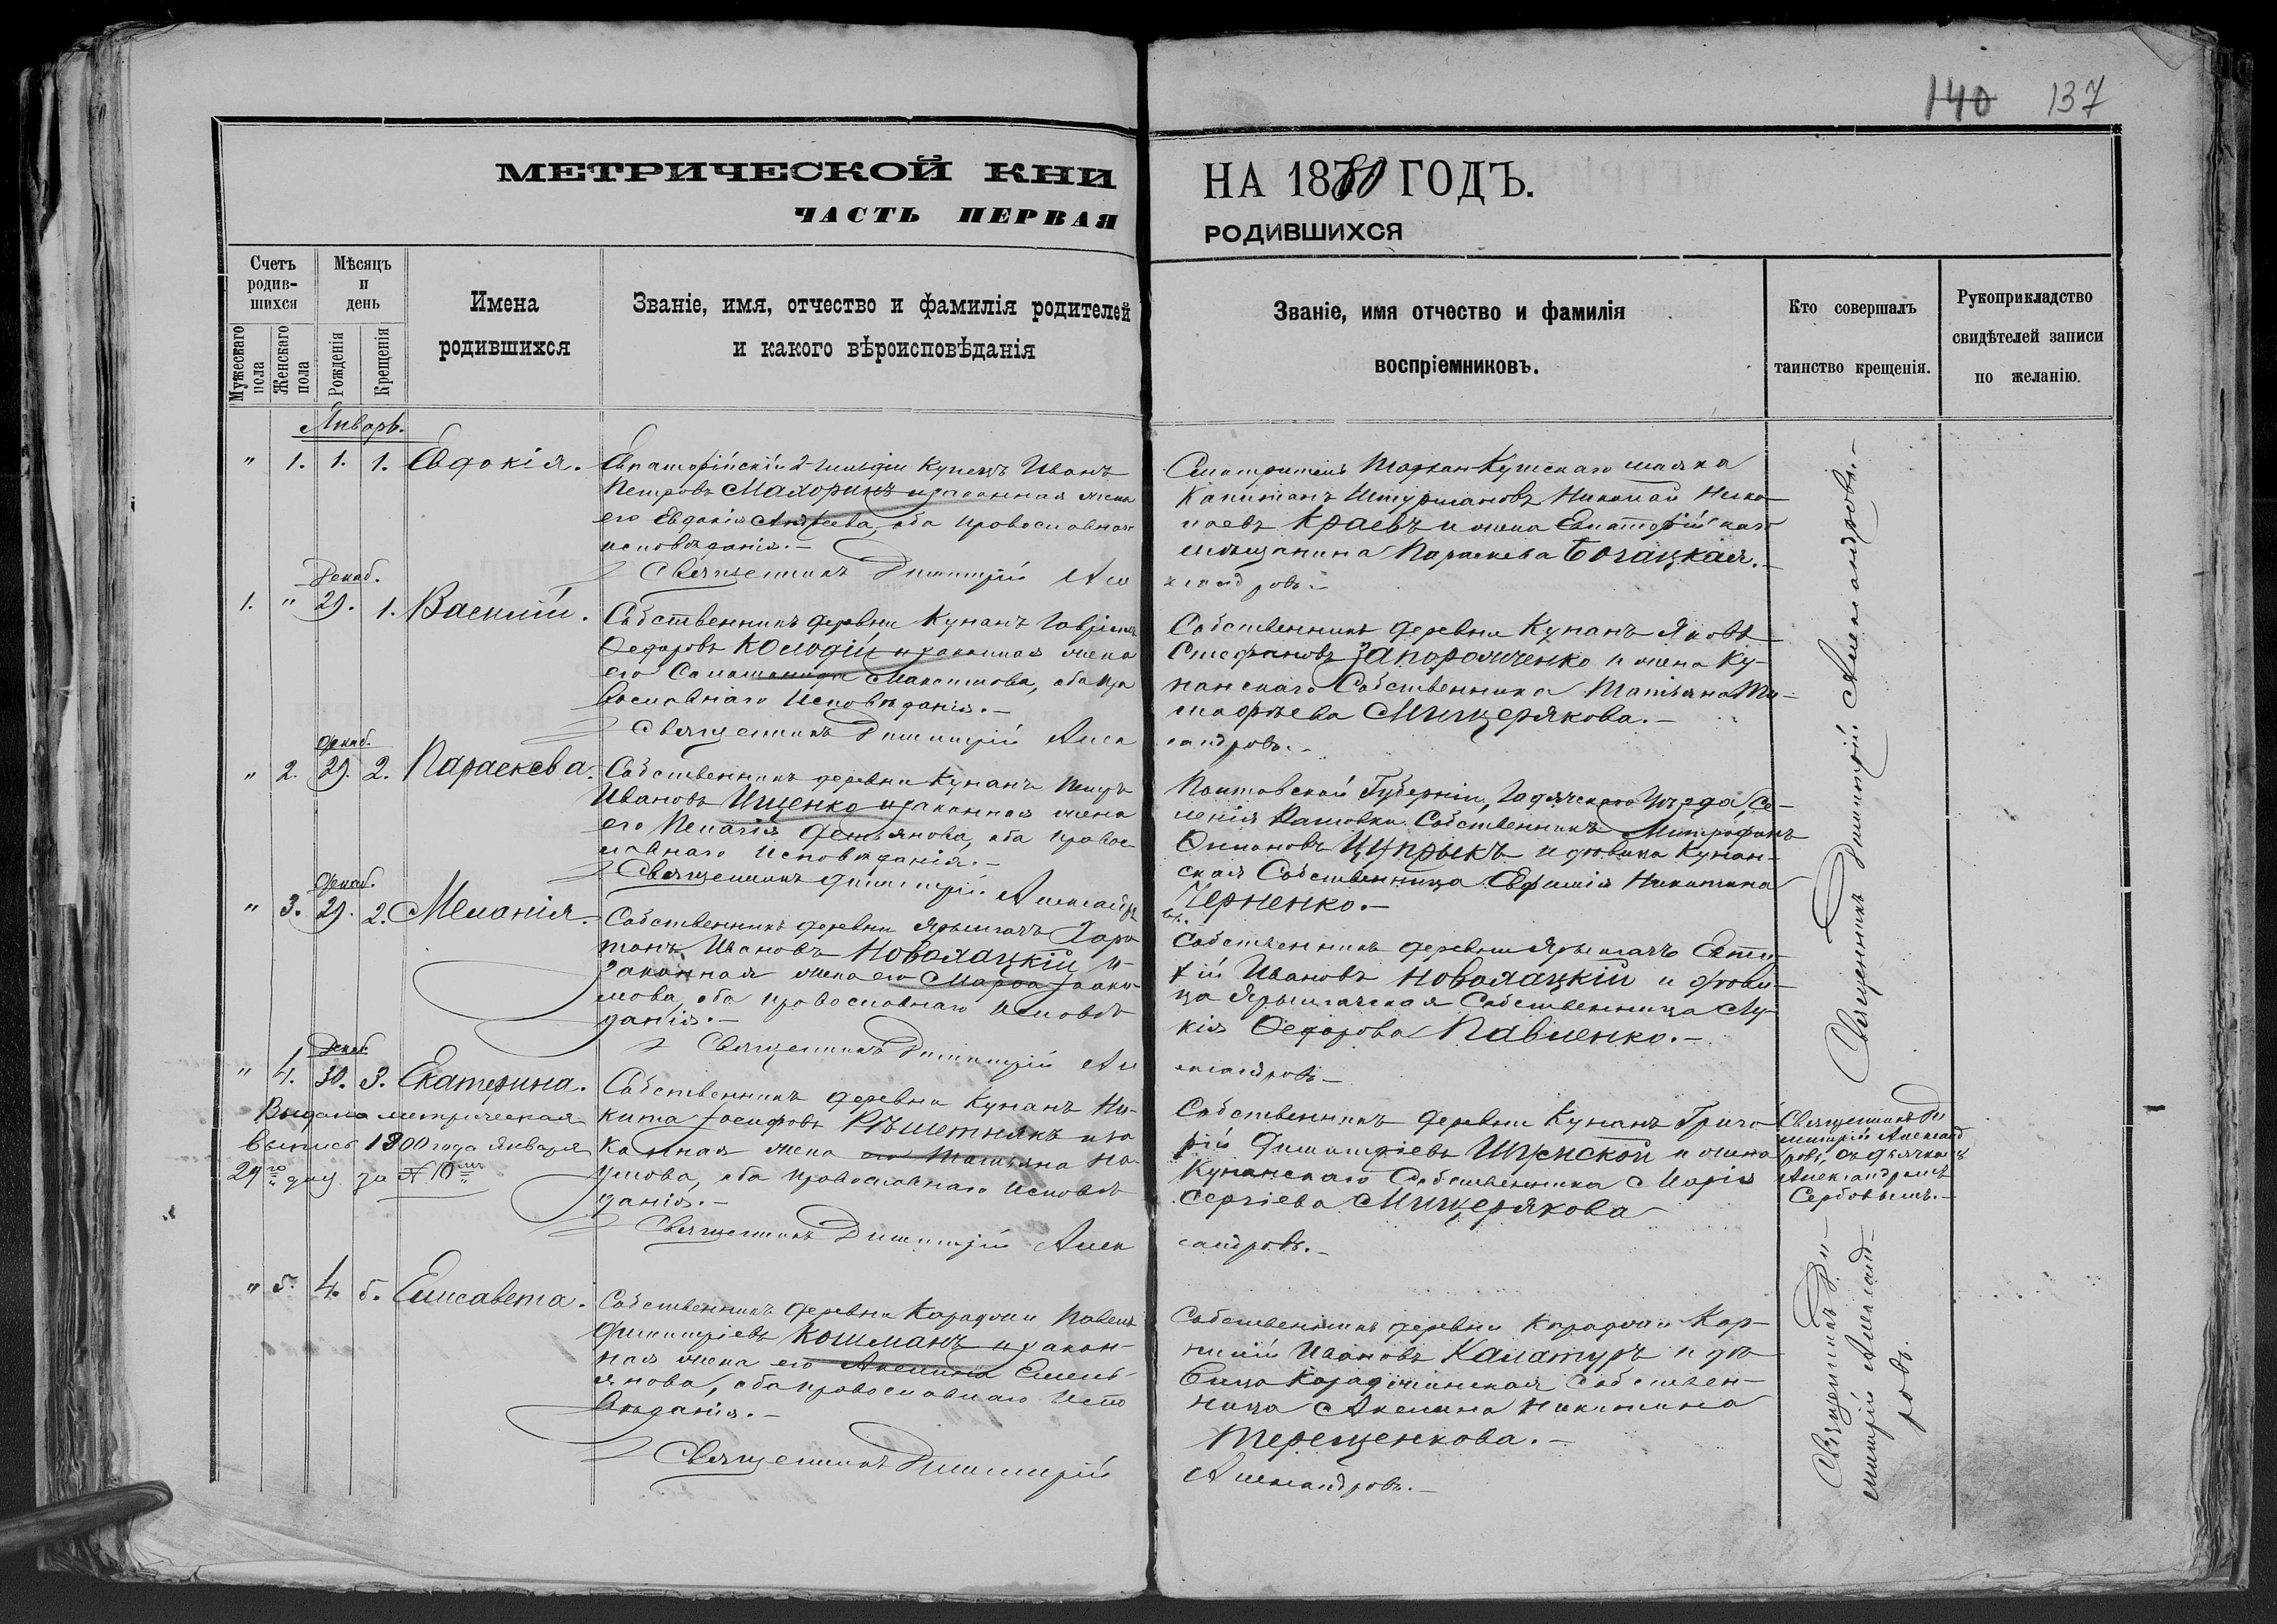 140 137
МЕТРИЧЕСКОЙ КНИ
НА 1880 ГОДЪ.
ЧАСТЬ ПЕРВАЯ
РОДИВШИХСЯ
Счетъ родив-шихся
Мужескаго пола
Женскаго пола
Мѣсяцъ и день
Рожденія
Крещенія
Имена родившихся
Званіе, имя, отчество и фамилія родителей
и какого вѣроисповѣданія
Званіе, имя отчество и фамилія
воспріемниковъ.
Кто совершалъ
таинство крещенія.
Рукоприкладство
свидѣтелей записи
по желанію.
Январь.
" 1. 1. 1. Евдокія.
Евпаторійскій 2 гильдіи Купецъ Иванъ
Петровъ Махоринъ и законная жена
его Евдокія, оба православнаго
исповѣданія.-
Священникъ Димитрій Але
Смотритель Тархан-Кутскаго маяка
Капитанъ Штурмановъ Николай Нико
лаевъ Краевъ и жена Евпаторійскаго
мѣщанина Параскева Богацкая.-
ксандровъ.-
Декаб.
1. " 29. 1. Василій.
Собственникъ деревни Кунанъ Гавріилъ
Ѳедоровъ Колодій и законная жена
его Максимова, оба пра
вославнаго Исповѣданія.-
Священникъ Димитрій Алек
Собственникъ деревни Кунанъ Яковъ
Стефановъ Запорожченко и жена Ку-
нанскаго Собственника Татьяна Ти-
моѳѣева Мищерякова.-
сандровъ.-
Декаб.
" 2. 29. 2. Параскева.
Собственникъ деревни Кунанъ Петръ
Ивановъ Ищенко и законная жена
его Пелагія Демьянова, оба правос-
лавнаго Исповѣданія.-
Священникъ Димитрій Александр
Полтавской Губерніи, Гадячскаго Уѣзда, Се-
ленія Рашовки Собственникъ Митрофанъ
Цупрыкъ и дѣвица Кунан-
ская Собственница Евфимія Никитина
Черненко.-
Декаб.
" 3. 29. 2. Меланія.
Собственникъ деревни Ярылгачъ Хари
тонъ Ивановъ Новохацкій и
законная жена его Марѳа Іоаки-
мова, оба православнаго исповѣ
данія.-
Священникъ Димитрій Але
Собственникъ деревни Ярылгачъ Евти-
хій Ивановъ Новохацкій и дѣви-
ца Ярылгачская Собственница Лу-
кія Ѳедорова Павленко.-
ксандровъ.-
Декаб.
" 4. 30. 3. Екатерина.
Выдана метрическая
выпись 1900 года Января
29го дня за № 10мъ
Собственникъ деревни Кунанъ Ни-
кита Іосифовъ Рѣшетнякъ и за
конная жена его Татьяна На-
умова, оба православнаго исповѣ
данія.-
Священникъ Димитрій Алек
Собственникъ деревни Кунанъ Григо
рій Димитріевъ и жена
Кунанскаго Собственника Марія
Сергіева Мищерякова
сандровъ.-
Священникъ Димитрій Александровъ.-
Священникъ Ди
митрій Александ
ровъ, съ дьячкомъ
Александромъ
Сербовымъ.-
" 5. 4. 5. Елисавета.
Собственникъ деревни Караджи Павелъ
Димитріевъ Кошманъ и закон-
ная жена его Акелина Емель-
янова, оба православнаго Испо
вѣданія.-
Священникъ Димитрій
Собственникъ деревни Караджи Кор-
нилій Ивановъ Каламуръ и дѣ-
вица Караджинская Собствен-
ница Акелина Никитина
Терещенкова.-
Александровъ.-
Священникъ Ди-
митрій Александ-
ровъ.